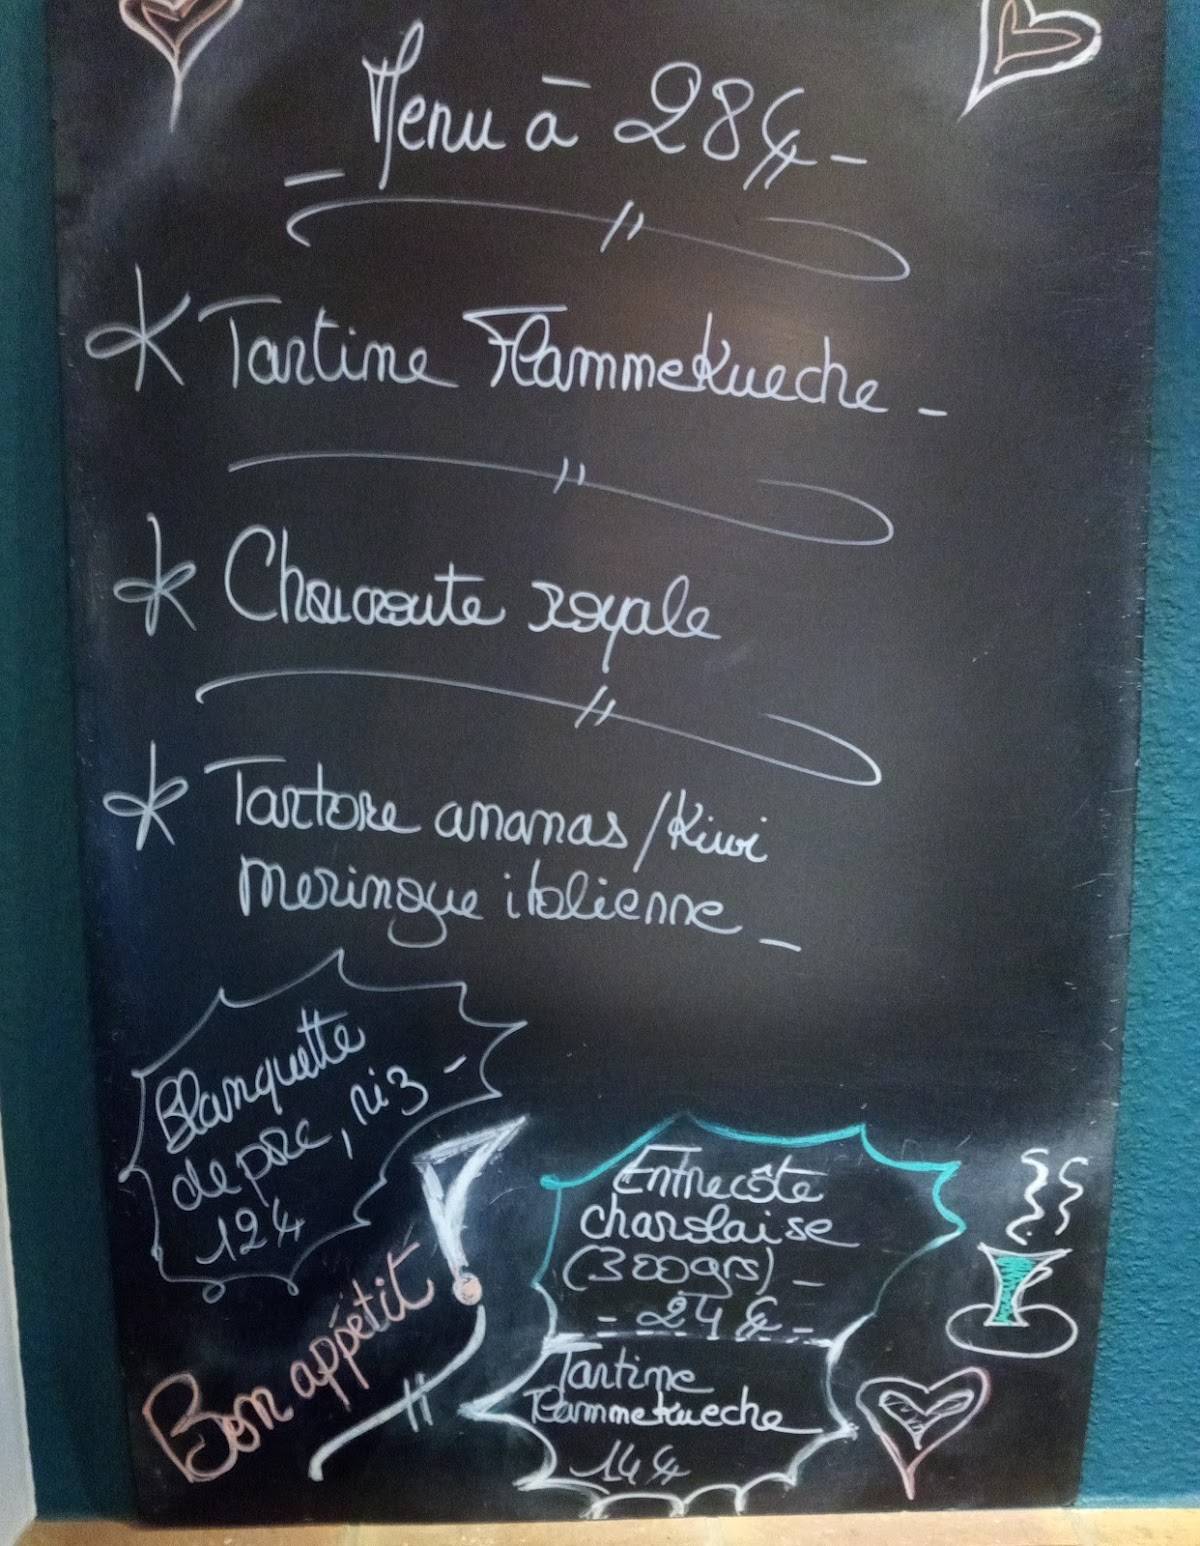 - Menu à 28€ -
* Tartine Flammekueche -
* Choucroute royale
* Tartare ananas / Kiwi
meringue italienne -
Blanquette
de porc, riz -
12€
Bon appétit !
Entrecôte
charolaise
(300grs) -
- 24€ -
Tartine
Flammekueche
14€